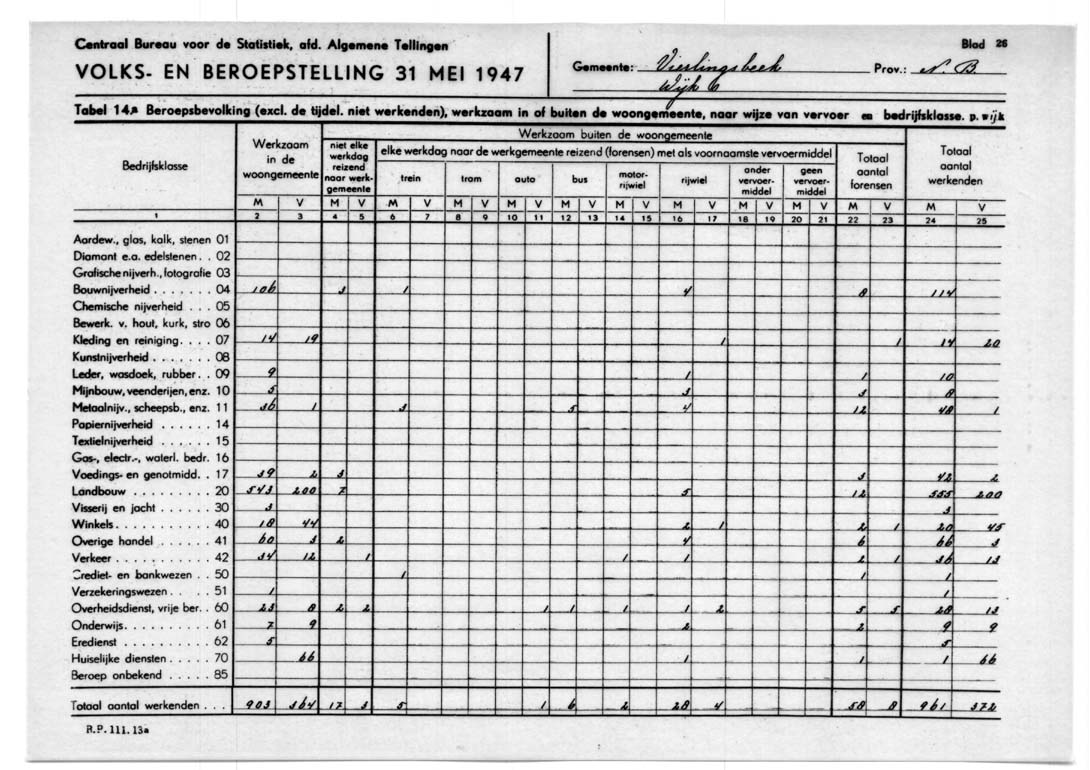 Centraal Bureau voor de Statistiek, afd. Algemene Tellingen
VOLKS- EN BEROEPSTELLING 31 MEI 1947
Gemeente: Vierlingsbeek
Wijk 6
Prov.: N. B.
Blad 26
Tabel 14.a Beroepsbevolking (excl. de tijdel. niet werkenden), werkzaam in of buiten de woongemeente, naar wijze van vervoer en bedrijfsklasse. p. wijk
Bedrijfsklasse
Werkzaam in de woongemeente
Werkzaam buiten de woongemeente
niet elke werkdag reizend naar werk-gemeente
elke werkdag naar de werkgemeente reizend (forensen) met als voornaamste vervoermiddel
trein tram auto bus motor-rijwiel rijwiel ander vervoer-middel geen vervoer-middel
Totaal aantal forensen
Totaal aantal werkenden
M V M V M V M V M V M V M V M V M V M V M V M V
1 2 3 4 5 6 7 8 9 10 11 12 13 14 15 16 17 18 19 20 21 22 23 24 25
Aardew., glas, kalk, stenen 01
Diamant e.a. edelstenen . . 02
Grafische nijverh., fotografie 03
Bouwnijverheid . . . . . . . 04 106 3 1 4 8 114
Chemische nijverheid . . . 05
Bewerk. v. hout, kurk, stro 06
Kleding en reiniging. . . . 07 14 19 1 1 14 20
Kunstnijverheid . . . . . . . 08
Leder, wasdoek, rubber. . 09 9 1 1 10
Mijnbouw, veenderijen, enz. 10 5 3 3 8
Metaalnijv., scheepsb., enz. 11 36 1 3 5 4 12 48 1
Papiernijverheid . . . . . . 14
Textielnijverheid . . . . . . 15
Gas-, electr.-, waterl. bedr. 16
Voedings- en genotmidd. . 17 39 2 3 3 42 2
Landbouw . . . . . . . . . 20 543 200 7 5 12 555 200
Visserij en jacht . . . . . . 30 3 3
Winkels. . . . . . . . . . . 40 18 44 2 1 2 1 20 45
Overige handel . . . . . . 41 60 3 2 4 6 66 3
Verkeer. . . . . . . . . . . 42 34 12 1 1 1 2 1 36 13
Crediet- en bankwezen . . 50 1 1 1
Verzekeringswezen. . . . . 51 1 1
Overheidsdienst, vrije ber. . 60 23 8 2 2 1 1 1 1 2 5 5 28 13
Onderwijs. . . . . . . . . . 61 7 9 2 2 9 9
Eredienst . . . . . . . . . . 62 5 5
Huiselijke diensten . . . . . 70 66 1 1 1 66
Beroep onbekend . . . . . 85
Totaal aantal werkenden . . . 903 364 17 3 5 1 6 2 28 4 58 8 961 372
R.P. 111. 13a